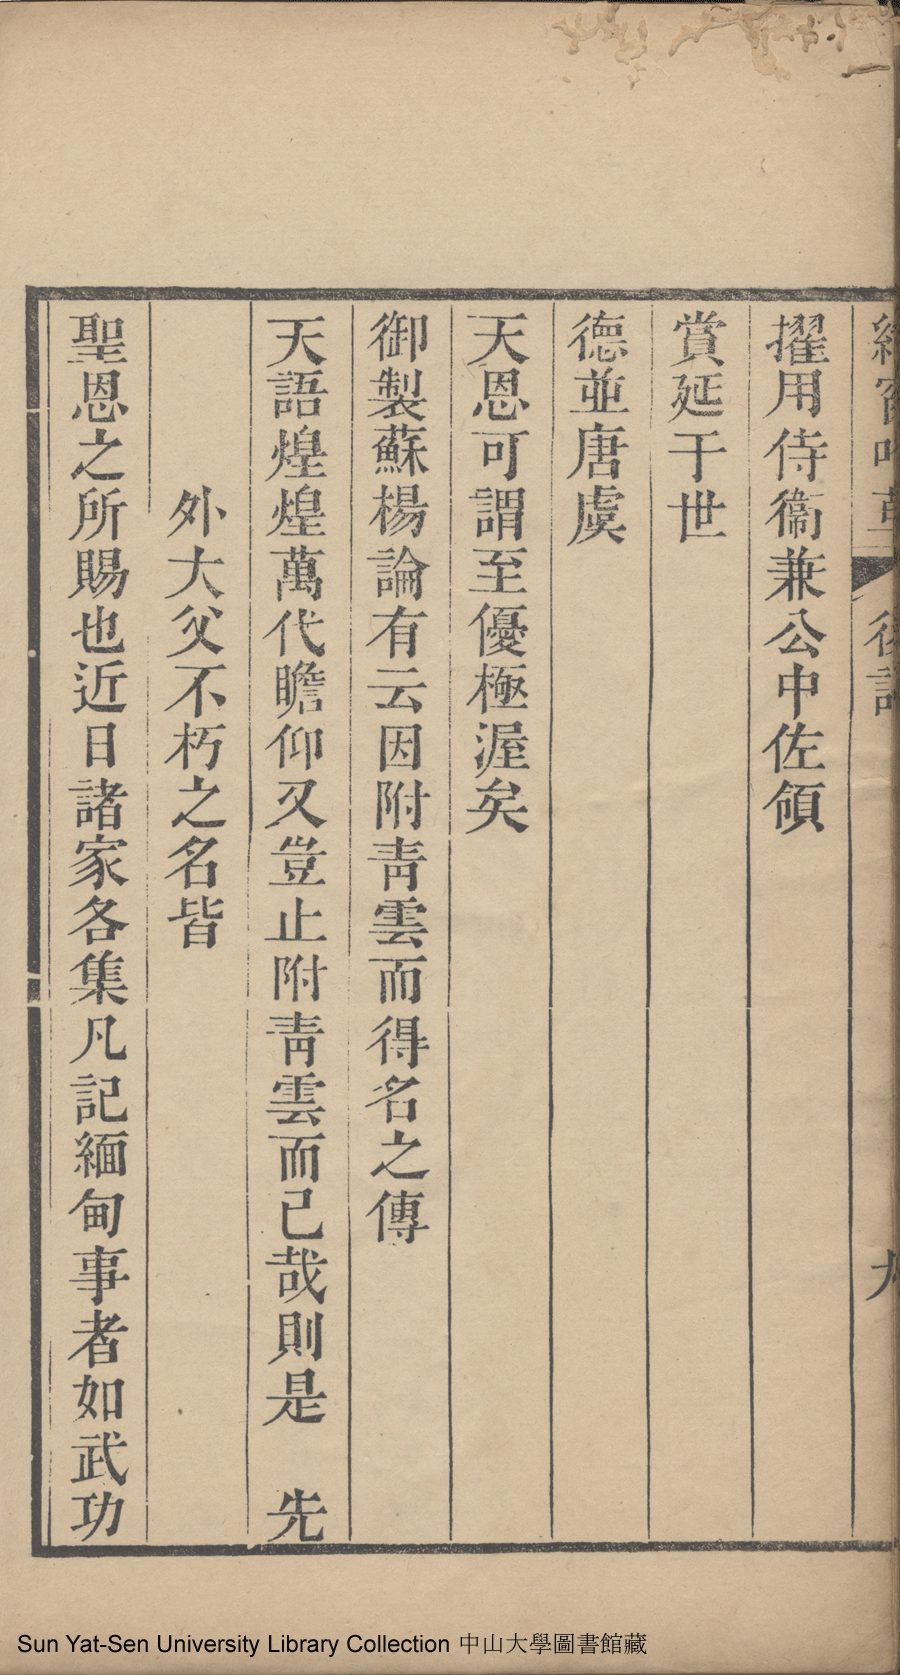 擢用侍衞兼公中佐領
賞延于世
德並唐虞
天恩可謂至優極渥矣
御製蘇楊論有云因附靑雲而得名之傳
天語煌煌萬代瞻仰又豈止附靑雲而已哉則是　先
外大父不朽之名皆
聖恩之所賜也近日諸家各集凡記緬甸事者如武功
Sun Yat-Sen University Library Collection 中山大學圖書館藏